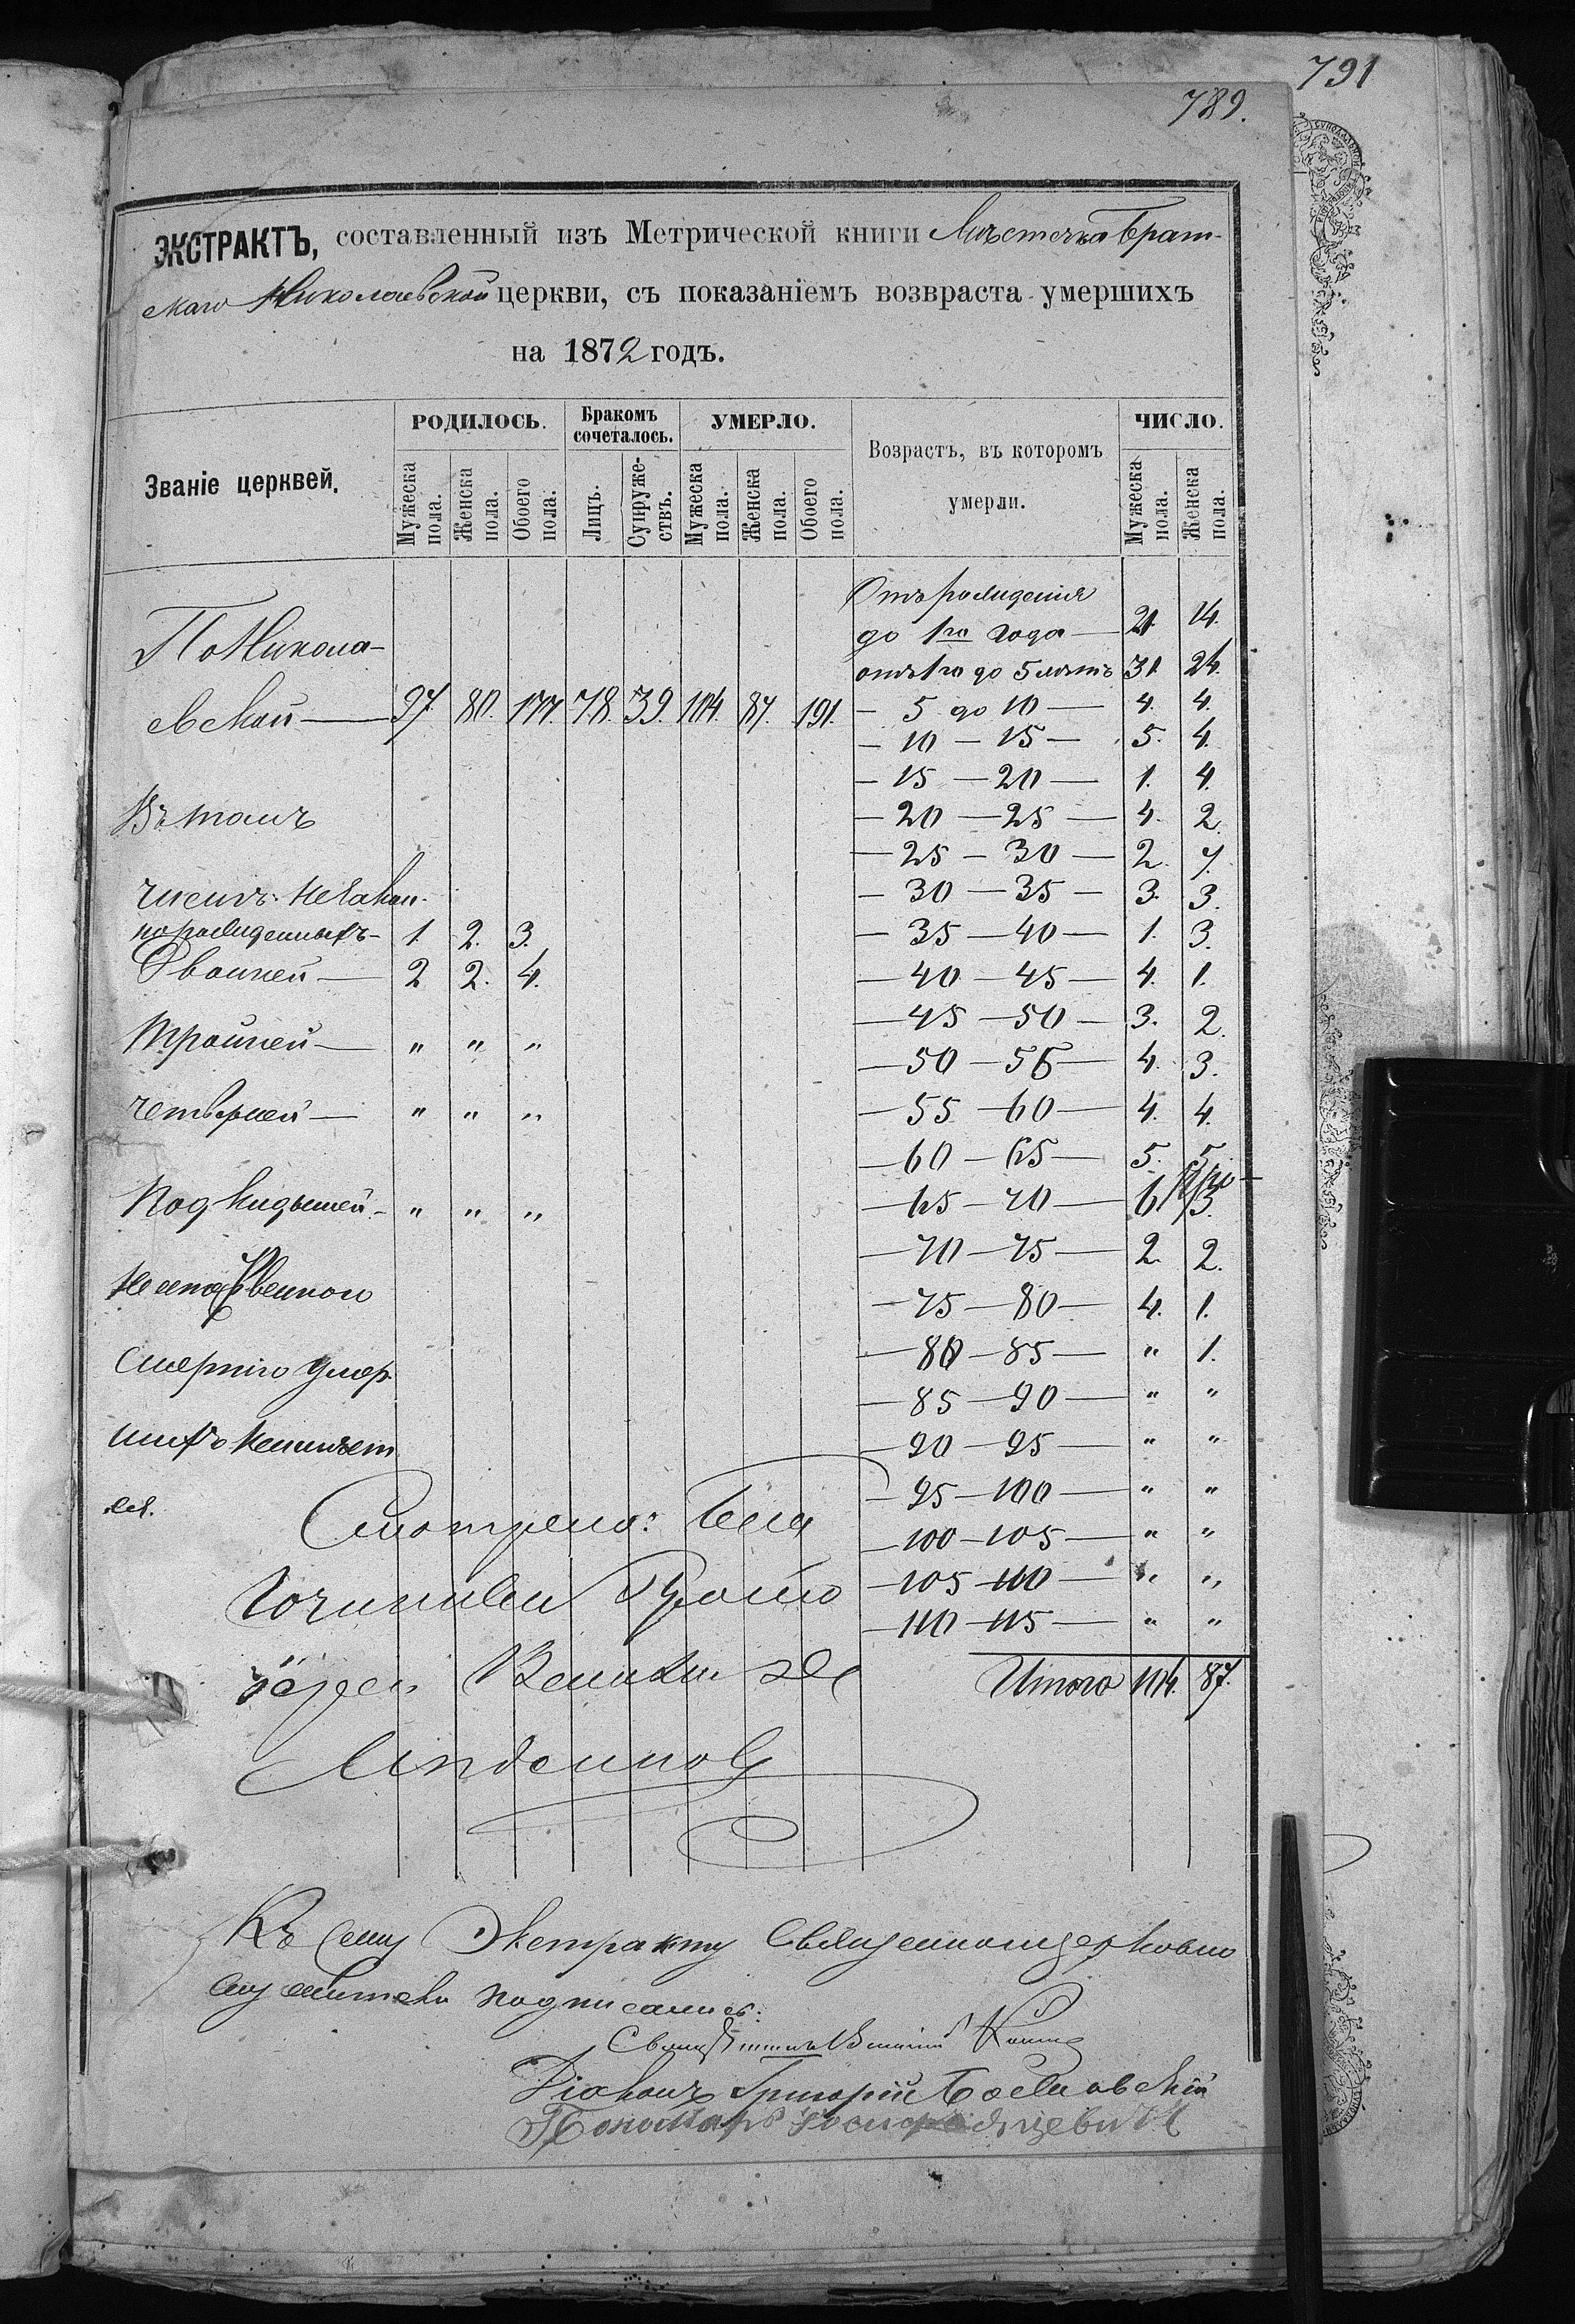 791
789.
ЭКСТРАКТЪ, составленный изъ Метрической книги Мѣстечка Брат-
скаго Николаевской церкви, съ показаніемъ возвраста умершихъ
на 1872 годъ.
Званіе церквей. РОДИЛОСЬ. Бракомъ сочеталось. УМЕРЛО. Возрастъ, въ которомъ умерли. ЧИСЛО.
Мужеска пола. Женска пола. Обоего пола. Лицъ. Супружествъ. Мужеска пола. Женска пола. Обоего пола. Мужеска пола. Женска пола.
Отъ рожденія
до 1го года — 21. 14.
По Никола-
отъ 1го до 5 лѣтъ 31. 24.
евской — 97. 80. 177. 78. 39. 104. 87. 191. — 5 до 10 — 4. 4.
— 10 — 15 — 5. 4.
— 15 — 20 — 1. 4.
Въ томъ — 20 — 25 — 4. 2.
— 25 — 30 — 2. 7.
числѣ: незакон- — 30 — 35 — 3. 3.
норожденныхъ — 1. 2. 3. — 35 — 40 — 1. 3.
Двойней — 2 2. 4. — 40 — 45 — 4. 1.
— 45 — 50 — 3. 2.
Тройней — " " " — 50 — 55 — 4. 3.
Четверней — " " " — 55 — 60 — 4. 4.
— 60 — 65 — 5. 5.
Подкидышей — " " " — 65 — 70 — 6. 3.
— 70 — 75 — 2. 2.
Неестественною — 75 — 80 — 4. 1.
Смертію умер- — 80 — 85 — " 1.
— 85 — 90 — " "
шихъ неимѣет — 90 — 95 — " "
ся. — 95 — 100 — " "
Смотрено: Благ
— 100 — 105 — " "
гочинный Прото — 105 — 110 — " "
— 110 — 115 — " "
іерей
Итого 104. 87.
Къ сему Экстракту Священноцерковно
служители подписались:
Священникъ Василій
Діаконъ Григорій
Пономарь